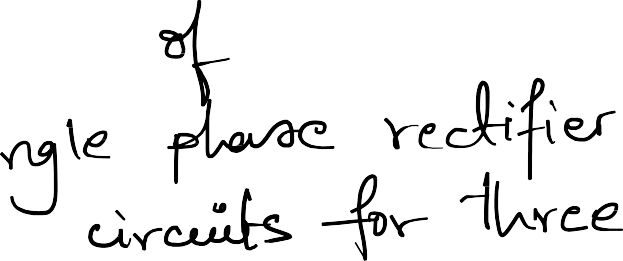 of
ngle phase rectifier
circuits for three